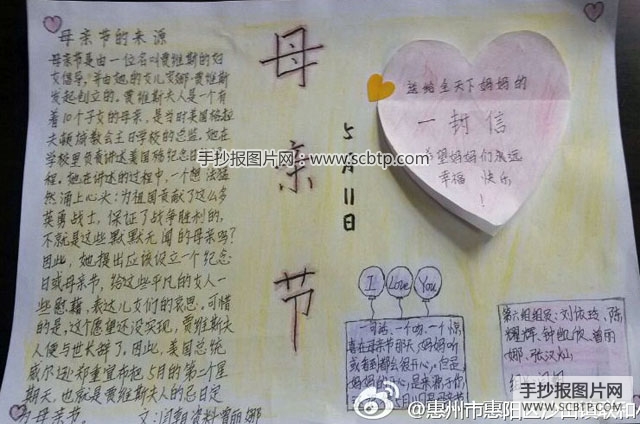 母亲节的来源
母亲节是由一位名叫贾维斯的妇
女倡导，并由她的女儿安娜·贾维斯
发起创立的。贾维斯夫人是一个有
着10个子女的母亲，是当时美国格拉
夫顿城教会主日学校的总监。她在
学校里负责讲述美国
程。她在讲述的过程中，一个想法猛
然涌上心头：为祖国贡献了这么多
英勇战士，保证了战争胜利的，
不就是这些默默无闻的母亲吗？
因此，她提出应该设立一个纪念
日或母亲节，给这些平凡的女人一
些慰藉，表达儿女们的哀思。可惜
的是，这个愿望还没实现，贾维斯夫
人便与世长辞了。因此，美国总统
威尔逊郑重宣布把5月的第二个星
期天，也就是贾维斯夫人的忌日定
为母亲节。
母亲节
5月11日
送给全天下妈妈的
一封信
希望妈妈们永远
幸福 快乐
！
I Love You
一句话，一个吻，一个惊
喜在母亲节那天，妈妈听
或看到都会很开心，但是
第六组组员：刘依玲、陈
手抄报图片网：www.scbtp.com
手抄报图片网
www.scbtp.com
@惠州市惠阳区沙田镇